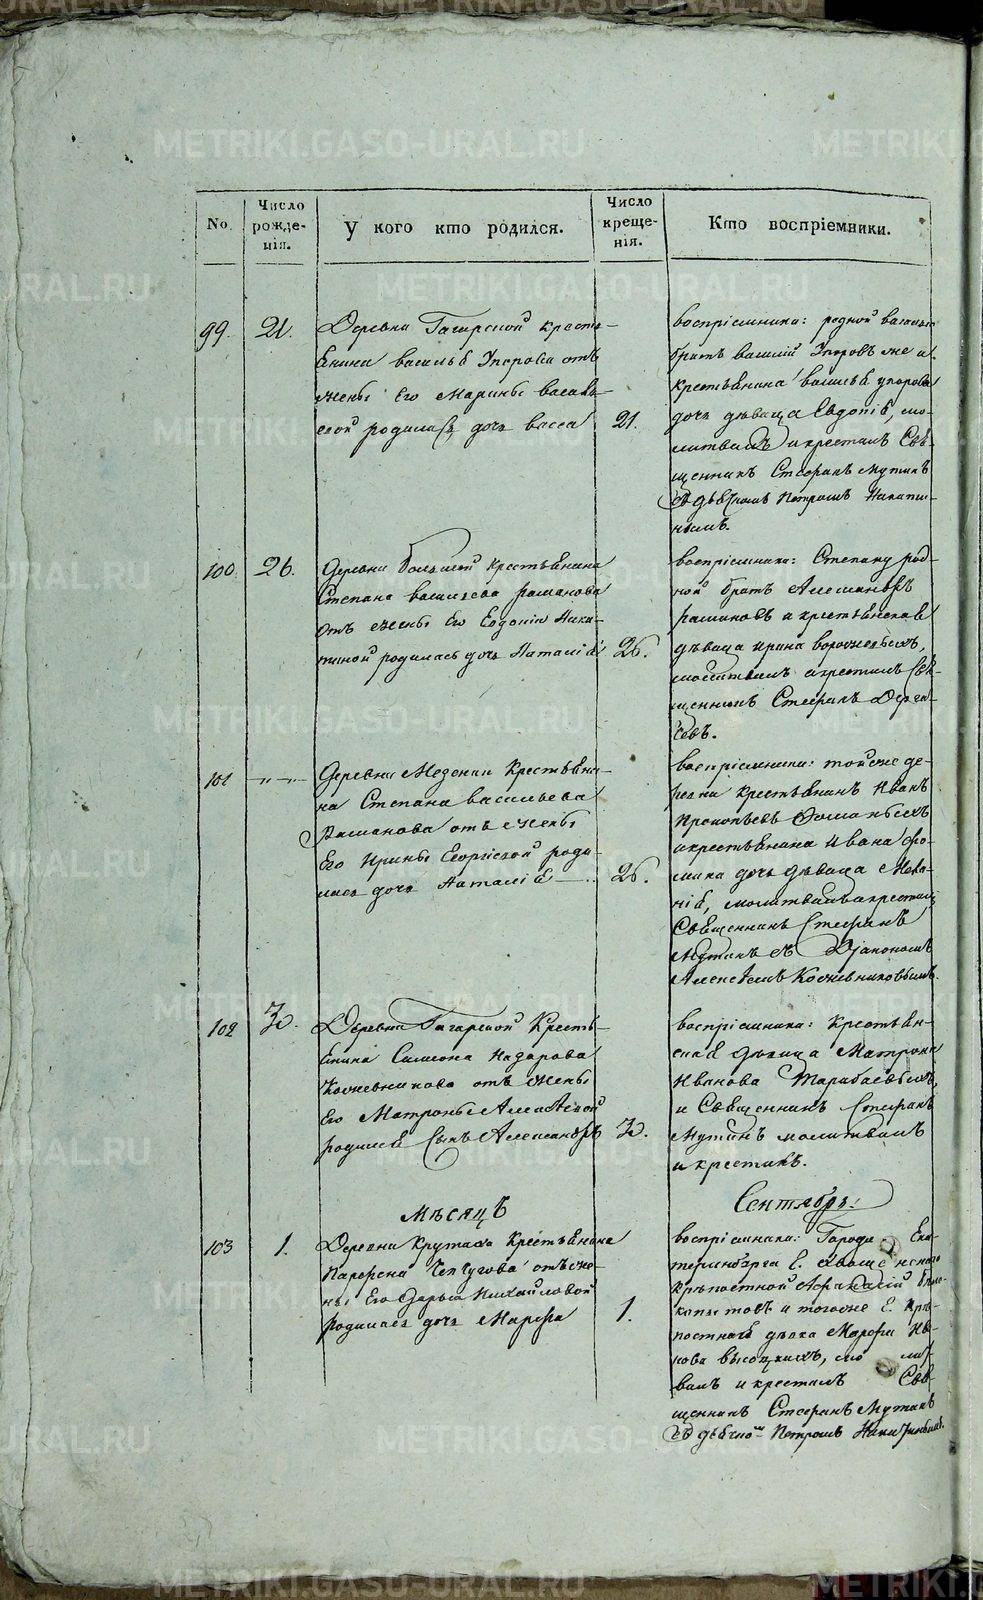 No.
Число рожденія.
У кого кто родился.
Число крещенія.
Кто воспріемники.
99.
21.
Деревни Гагарской кресть-
янина василья Упорова отъ
жены его Марины василь-
евой родилась дочь васса
21.
воспріемники: родной
братъ василій Упоровъ же и
крестьянина василья упорова
дочь дѣвица Евдокія, мо-
литвилъ и крестилъ Свя-
щенникъ Стефанъ Мутинъ
съ дьячкомъ Петромъ Никити-
нымъ.
100.
26.
деревни большой крестьянина
Степана васильева романова
отъ жены его Евдокіи Ники-
тиной родилась дочь Наталія
26.
воспріемники: Степану род-
ной братъ Александръ
романовъ и крестьянская
дѣвица ирина
молитвилъ и крестилъ Свя-
щенникъ Стефанъ Дерга-
чевъ.
101
Деревни Мезенки Крестьяни-
на Степана васильева
Романова отъ жены
Его Ирины Егоріевой роди-
лась дочь Наталія
26.
воспріемники: тойже де-
ревни крестьянинъ Иванъ
Прокопьевъ
и крестьянина Ивана Фо-
мина дочь дѣвица Мела-
нія, молитвилъ и крестилъ
Священникъ Стефанъ
Мутинъ съ Діякономъ
Алексѣемъ Кожевниковымъ.
102
30.
Деревни Гагарской Кресть-
янина Симеона Назарова
Кожевникова отъ жены
Его Матроны Алексѣевой
родился Сынъ Александръ
30.
воспріемники: Крестьян-
ская дѣвица Матрона
Иванова Тарабаевыхъ,
и Священникъ Стефанъ
Мутинъ молитвилъ
и крестилъ.
Мѣсяцъ
Сентябрь:
103
1.
Деревни Крутаго Крестьянина
Парфена Чепчугова отъ же-
ны Его Дарьи Михайловой
родилась дочь Марфа
1.
воспріемники: Города Ека-
теринбурга Г.
крѣпостной Афанасій
и тогоже Г. крѣ-
постная дѣвка Марфа Ива-
нова высоцкихъ, мо лит-
вилъ и крестилъ Свя-
щенникъ Стефанъ Мутинъ
съ дьячкомъ Петромъ Никитинымъ.
METRIKI.GASO-URAL.RU